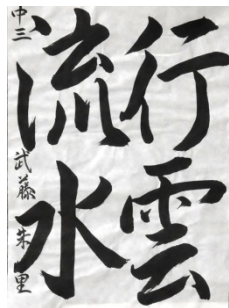 行雲
流水
中三 武藤朱里